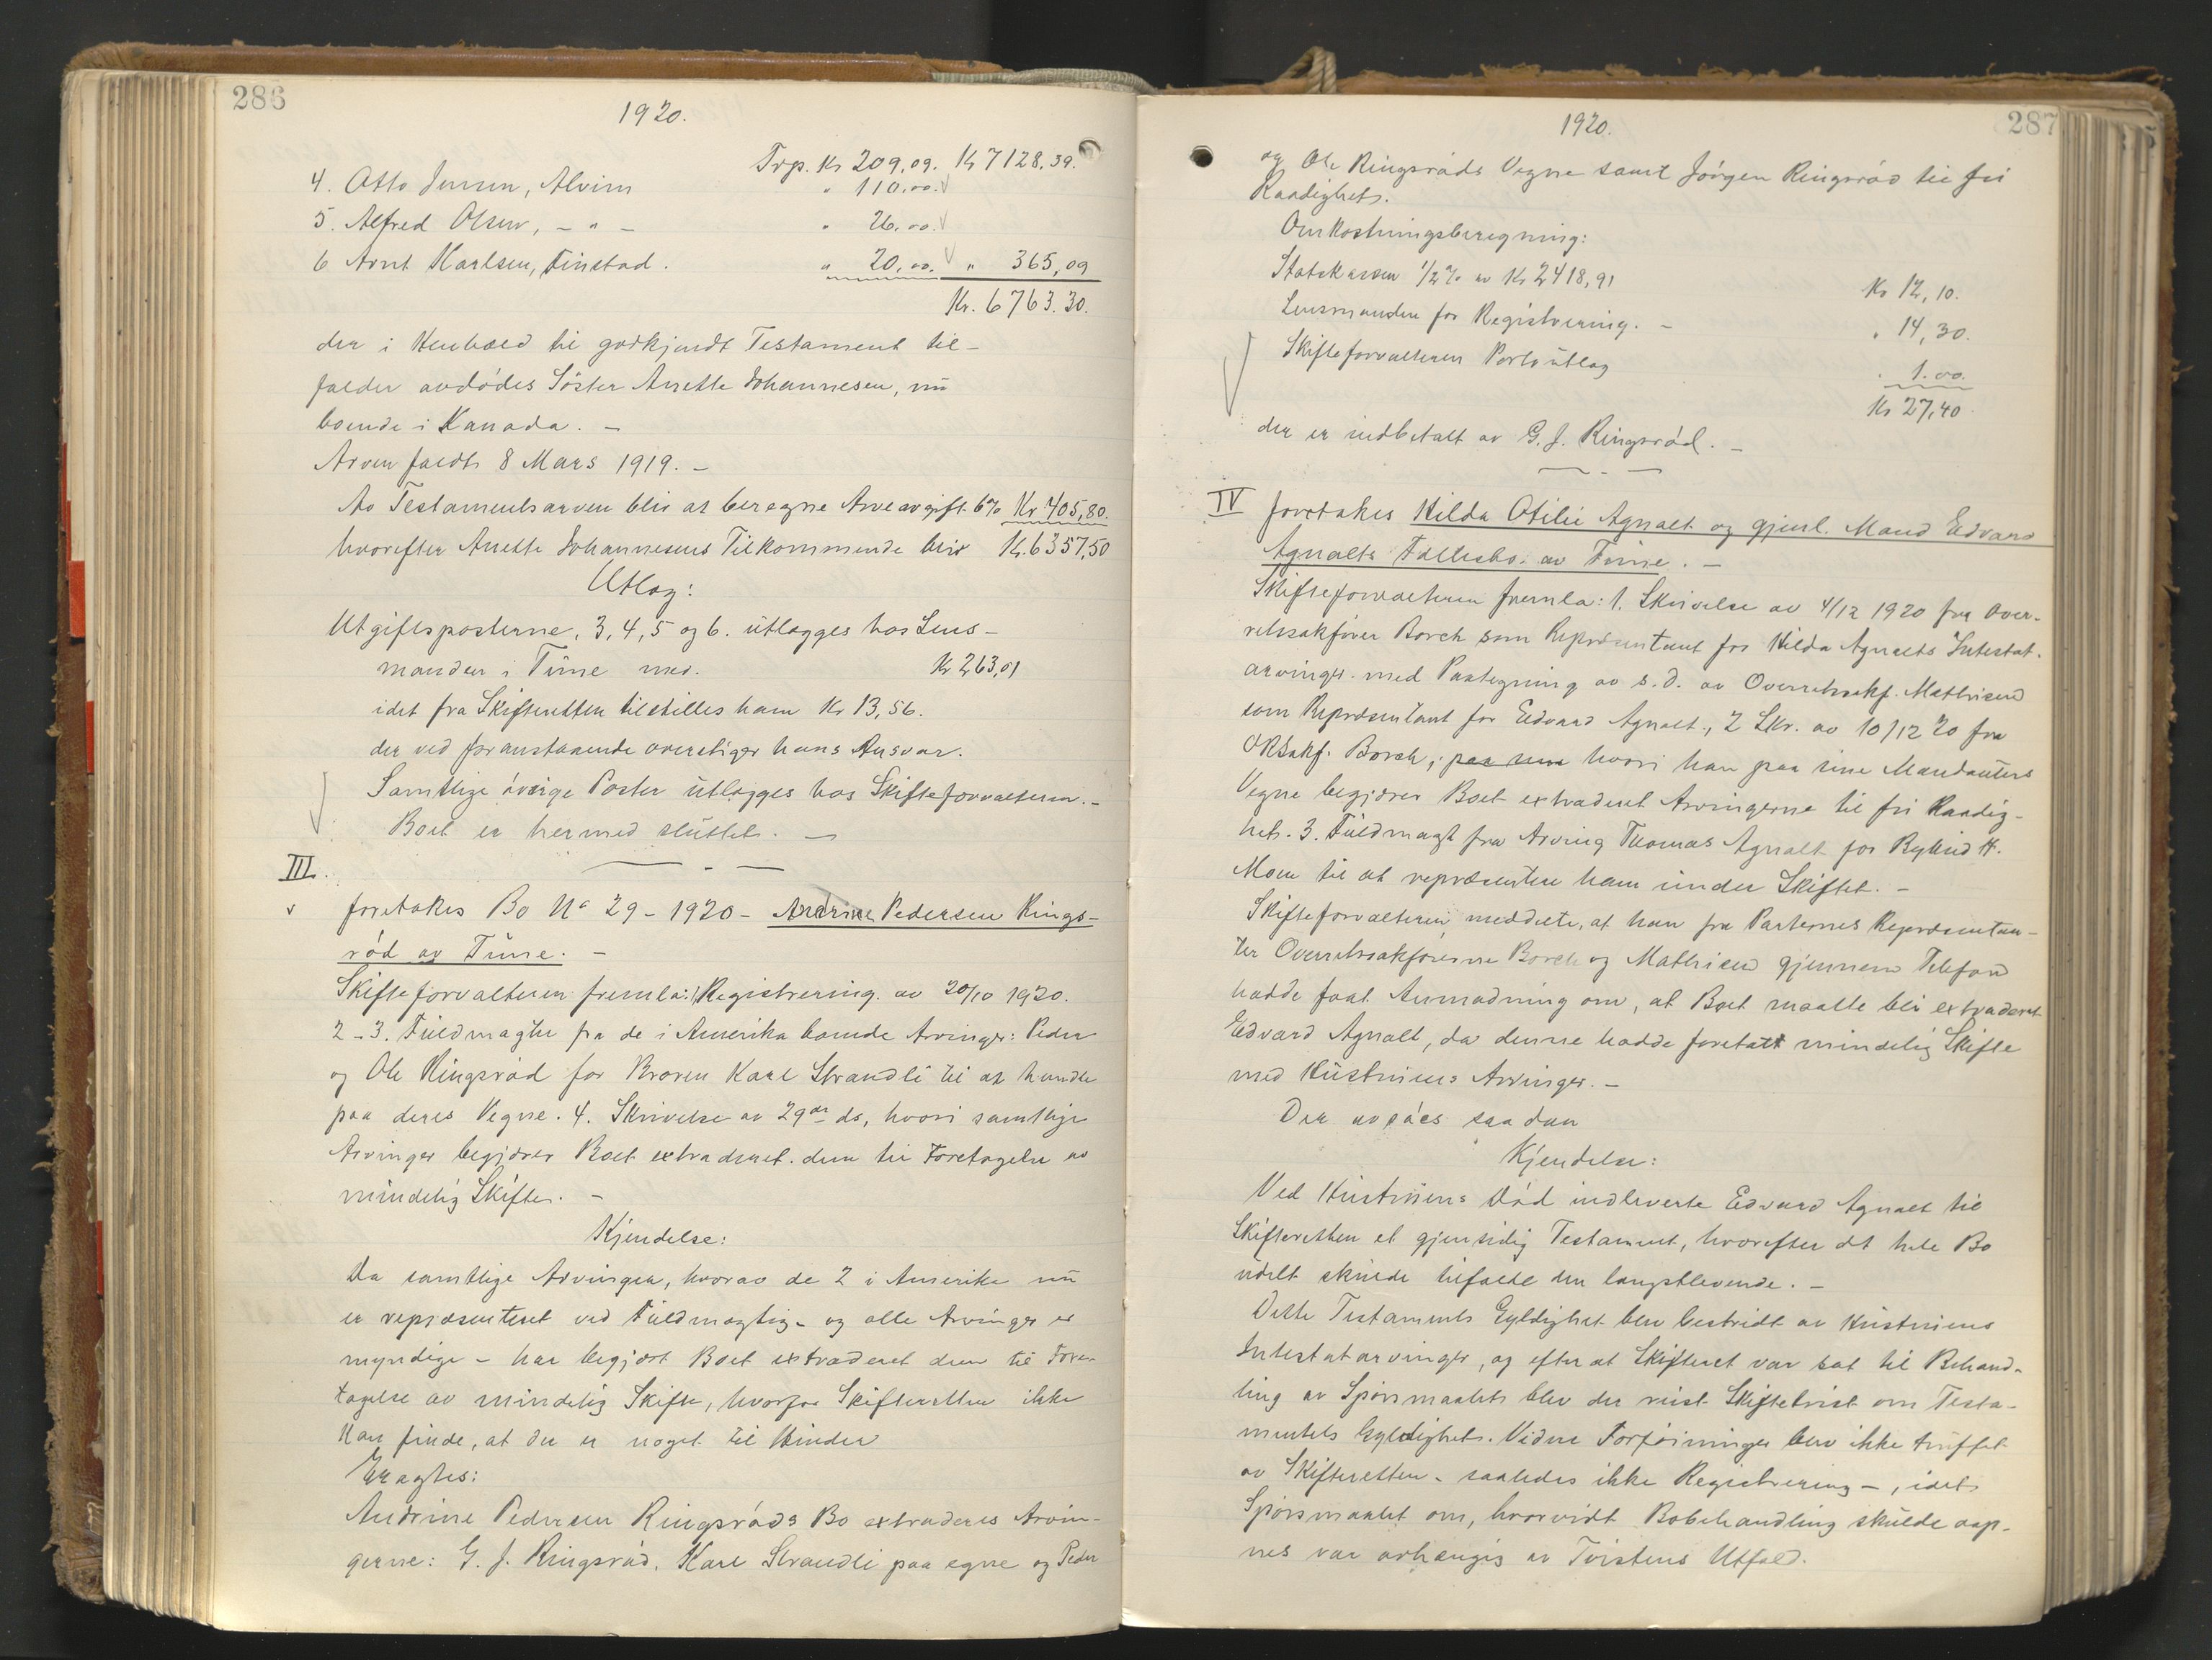 286
1920.
Trp. Kr 209,09. Kr 7128,39.
4. Otto Jensen, Alvim " 110,00.
5. Alfred Olsen, - " - " 26,00.
6 Arnt Karlsen, Tinstad. " 20,00. " 365,09
Kr. 6763.30.
der i Henhold til godkjendt Testament til-
falder avdødes Søster Anette Johannesen, nu
boende i Kanada. -
Arven faldt 8 Mars 1919. -
Av Testamentsarven blir at beregne Arveavgift 6% Kr 405,80.
hvorefter Anette Johannesens Tilkommende blir Kr. 6357,50
Utlæg:
Utgiftsposterne, 3, 4, 5 og 6. utlægges hos Lens-
manden i Tune med. Kr 263,01
idet fra Skifteretten tilstilles ham Kr 13,56.
der ved foranstaaende overstiger hans Ansvar.
Samtlige øvrige Poster utlægges hos Skifteforvalteren. -
Boet er hermed sluttet. -
III.
foretakes Bo No 29 - 1920 - Andrine Pedersen Rings-
rød av Tune. -
Skifteforvalteren fremla: 1 Registrering av 20/10 1920.
2-3. Fuldmagter fra de i Amerika boende Arvinger: Peder
og Ole Ringsrød for Broren Karl Strandli til at handle
paa deres Vegne. 4. Skrivelse av 29de ds, hvori samtlige
Arvinger begjærer Boet extraderet dem til Foretagelse av
mindelig Skifte. -
Kjendelse:
Da samtlige Arvinger, hvorav de 2 i Amerika nu
er repræsenteret ved Fuldmægtig - og alle Arvinger er
myndige - har begjært Boet extraderet dem til Fore-
tagelse av mindelig Skifte, hvorfor Skifteretten ikke
kan finde, at der er noget til Hinder
Eragtes:
Andrine Pedersen Ringsrøds Bo extraderes Arvin-
gerne: G. J. Ringsrød, Karl Strandli paa egne og Peder
287
1920.
og Ole Ringsrøds Vegne samt Jørgen Ringsrød til fri
Raadighet.
Omkostningsberegning:
Statskassen 1/2% av Kr 2418,91 Kr 12,10.
Lensmanden for Registrering. - " 14,30.
Skifteforvalteren Portoutlæg " 1.00.
Kr 27,40
der er indbetalt av G. J. Ringsrød. -
IV foretakes Hilda Otilie Agnalt og gjenl. Mand Edvard
Agnalts Fællesbo. av Tune. -
Skifteforvalteren fremla: 1. Skrivelse av 4/12 1920 fra Over-
retssakfører Borch som Repræsentant for Hilda Agnalts Intestat-
arvinger med Paategning av s. d. av Overretssakf. Mathisen
som Repræsentant for Edvard Agnalt., 2 Skr. av 10/12 20 fra
ORSakf. Borch, hvori han paa sine Mandanters
Vegne begjærer Boet extraderet Arvingerne til fri Raadig-
het. 3. Fuldmagt fra Arving Thomas Agnalt for H.
Moen til at repræsentere ham under Skiftet. -
Skifteforvalteren meddelte, at han fra Parternes Repræsentan-
ter Overretssakførerne Borch og Mathisen gjennem Telefon
hadde faat Anmodning om, at Boet maatte bli extraderet
Edvard Agnalt, da denne hadde foretatt mindelig Skifte
med Hustruens Arvinger. -
Der avsaes saadan
Kjendelse:
Ved Hustruens Død indleverte Edvard Agnalt til
Skifteretten et gjensidig Testament, hvorefter det hele Bo
udelt skulde tilfalde den længstlevende. -
Dette Testaments Gyldighet blev bestridt av Hustruens
Intestatarvinger, og efter at Skifteret var sat til Behand-
ling av Spørsmaalet blev der reist Skiftetvist om Testa-
mentets Gyldighet. Videre Forføininger blev ikke truffet
av Skifteretten - saaledes ikke Registrering -, idet
Spørsmaalet om, hvorvidt Bobehandling skulde aap-
nes var avhængig av Tvistens Utfald.